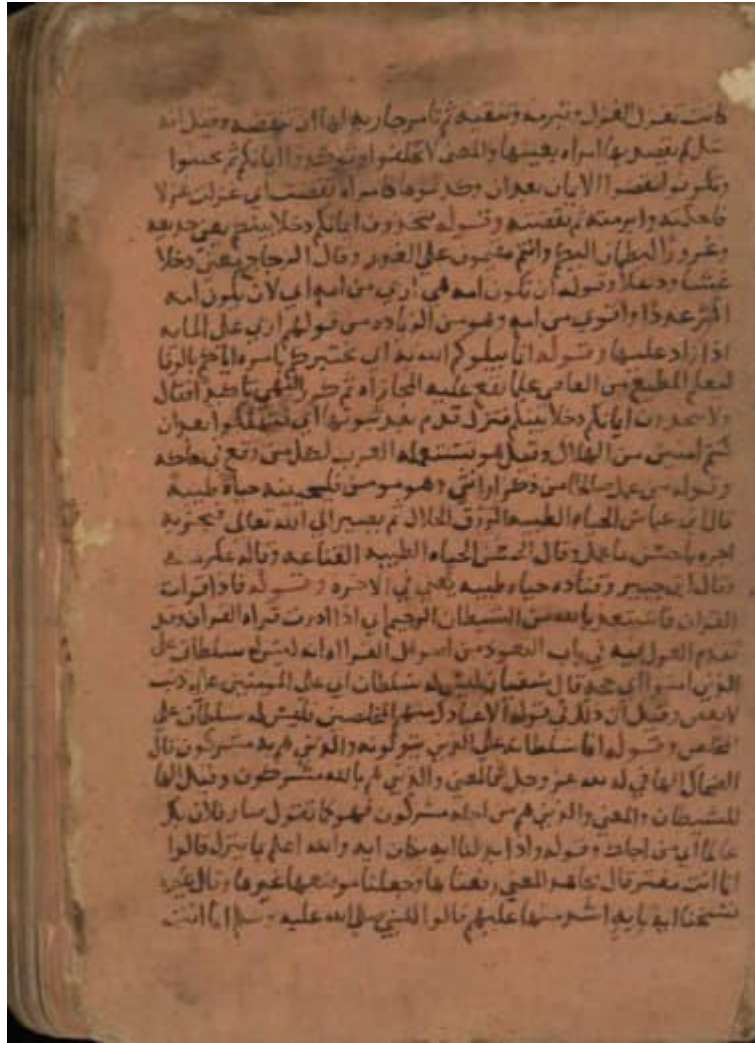 كانت تغزل الغزل وتبرمه وتنقيه ثم تامر جاريه لها ان تنقضه وقيل انه
مثل لم يقصد بها امراه بعينها والمعنى لا تحلفوا وتوكدوا ايمانكم ثم تحنثوا
وتكونوا نقضوا الايمان بعدان امراه نقضت اي غزلت غزلا
فاحكمته وابرمته ثم نقضته وقوله تتخذون ايمانكم دخلا بينكم يعني خديعه
وغرورا وانتم مقيمون على الغدر وقال الزجاج يعني دخلا
غشا ودغلا وقوله ان تكون امه هي اربى من امه اي لان تكون امه
اكثر عددا واقوى من امه وهو من الزياده من قولهم اربى على المايه
اذا زاد عليها وقوله انما يبلوكم الله به اي يختبركم بامره اياكم بالوفا
ليعلم المطيع من العاصي عليه المجازاه ثم كرر النهي تاكيدا فقال
ولا تتخذون ايمانكم دخلا بينكم فتزل قدم بعد ثبوتها اي بعدان
كنتم امنين من الهلاك وقيل هو تستعمله العرب لكل من وقع في
وقوله من عمل صالحا من ذكر او انثى وهو مومن فلنحيينه حياة طيبة
قال ابن عباس الحياه الطيبه الرزق الحلال ثم يصير الى الله تعالى فيجزيه
اجره باحسن ما عمل وقال الحسن الحياه الطيبه القناعه وقاله عكرمه
وقال ابن جبير وقتاده حياه طيبه يعني في الاخره وقوله فاذا قرات
القران فاستعذ بالله من الشيطان الرجيم اي اذا اردت قراه القران وقد
تقدم القول فيه في باب التعوذ من اصول القراه انه ليس له سلطان على
الذين امنوا اي حجه قال سفيان ليس له سلطان اي على المومنين ذنب
لا يغفر وقيل ان ذلك في قوله الا عبادك منهم المخلصين فليس له سلطان على
المخلص وقوله انما سلطانه على الذين يتولونه والذين هم به مشركون قال
الضحاك الها في به لله عز وجل فالمعنى والذين هم بالله مشركون وقيل الها
للشيطان والمعنى والذين هم من اجله مشركون فهو كما تقول صار فلان بك
عالما اي من اجلك وقوله واذا بدلنا ايه مكان ايه والله اعلم بما ينزل قالوا
انما انت مفتر قال مجاهد المعنى رفعناها وجعلنا موضعها غيرها وقال غيره
نسخنا ايه بايه اشد منها عليهم قالوا للنبي صلى الله عليه وسلم انما انت